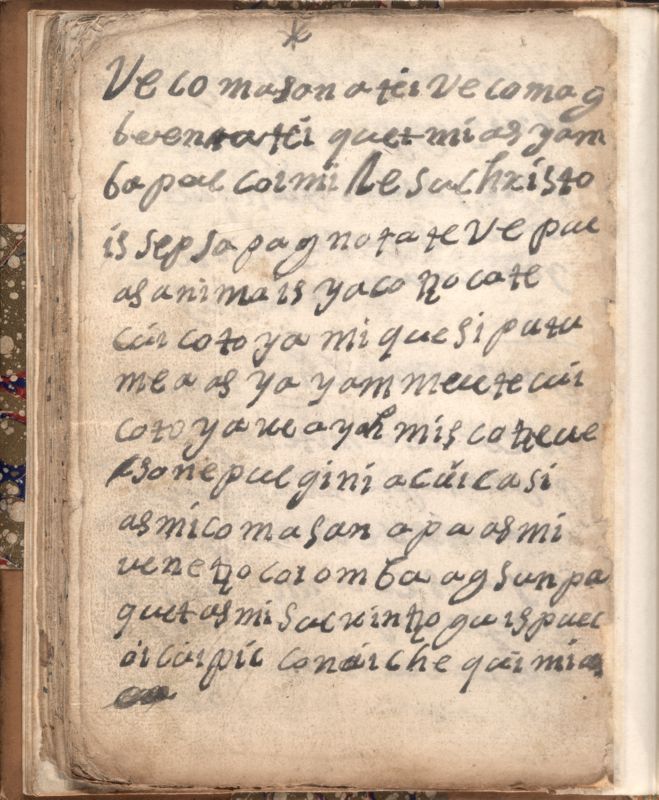 Ve co masan atei Ve comag
beven tei quet mi as yam
ba pue coimi Jesuchristo
is sepsa pag nota te Ve pue
as animais yaco tzo ca te
cui co to ya mi que si pata
me a as ya yam meu te cui
co to ya ue a yah mis co tzeue
sane pue gini a cuicasi
as mi co masan a pa as mi
uene tzo coi om ba ag sun pa
quet as mi sac u in tzo ga is puec
oi cui pic con oi che qui mi as